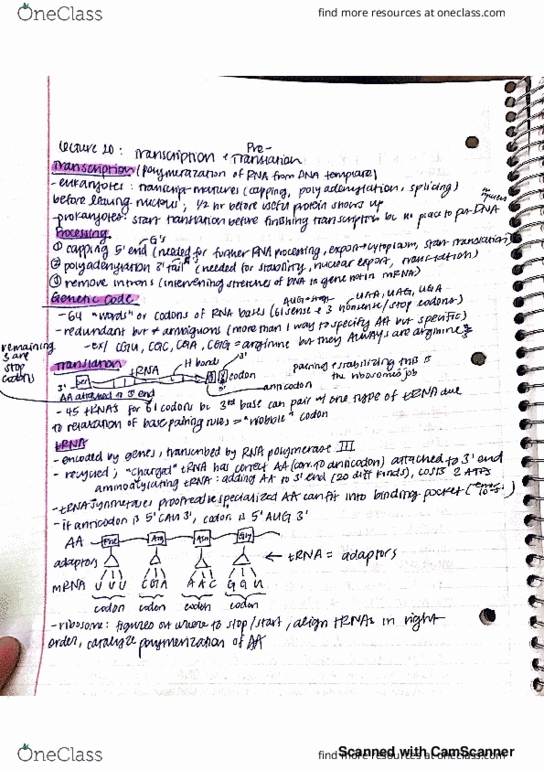 OneClass
find more resources at oneclass.com
Lecture 20: Transcription & Pre-Translation
Transcription (polymerization of RNA from DNA template)
- eukaryotes: transcript matures (capping, polyadenylation, splicing)
before leaving nucleus; 1/2 hr before useful protein shows up
- prokaryotes: start translation before finishing transcription bc no place to put DNA
Processing
G's
① capping 5' end (needed for further RNA processing, export → cytoplasm, start translation)
② polyadenylation 3' tail (needed for stability, nuclear export, translation)
③ remove introns (intervening stretches of DNA in gene not in mRNA)
Genetic code
AUG = start
UAA, UAG, UGA
- 64 "words" or codons of RNA bases (61 sense & 3 nonsense/stop codons)
- redundant but ≠ ambiguous (more than 1 way to specify AA but specific)
- ex/ CGU, CGC, CGA, CGG = arginine but they ALWAYS are arginine
remaining
3 are
stop
codons
Translation
tRNA
H bonds
3'
codon
3'
5'
anticodon
pairing & stabilizing this is
the ribosome's job
AA attached @ 3' end
- 45 tRNAs for 61 codons bc 3rd base can pair w/ one type of tRNA due
to relaxation of base pairing rules = "wobble" codon
tRNA
- encoded by genes, transcribed by RNA polymerase III
- recycled; "charged" tRNA has correct AA (corr. to anticodon) attached to 3' end
aminoacylating tRNA: adding AA to 3' end (20 diff kinds), costs 2 ATPs
- tRNA synthetases proofread specialized AA can fit into binding pocket
- if anticodon is 5' CAU 3', codon is 5' AUG 3'
AA Phe Arg Asn Gly
adaptors ← tRNA = adaptors
mRNA U U U C G A A A C G G U
codon codon codon codon
- ribosome: figures out where to stop/start, align tRNAs in right
order, catalyze polymerization of AA
Scanned with CamScanner
OneClass
find more resources at oneclass.com